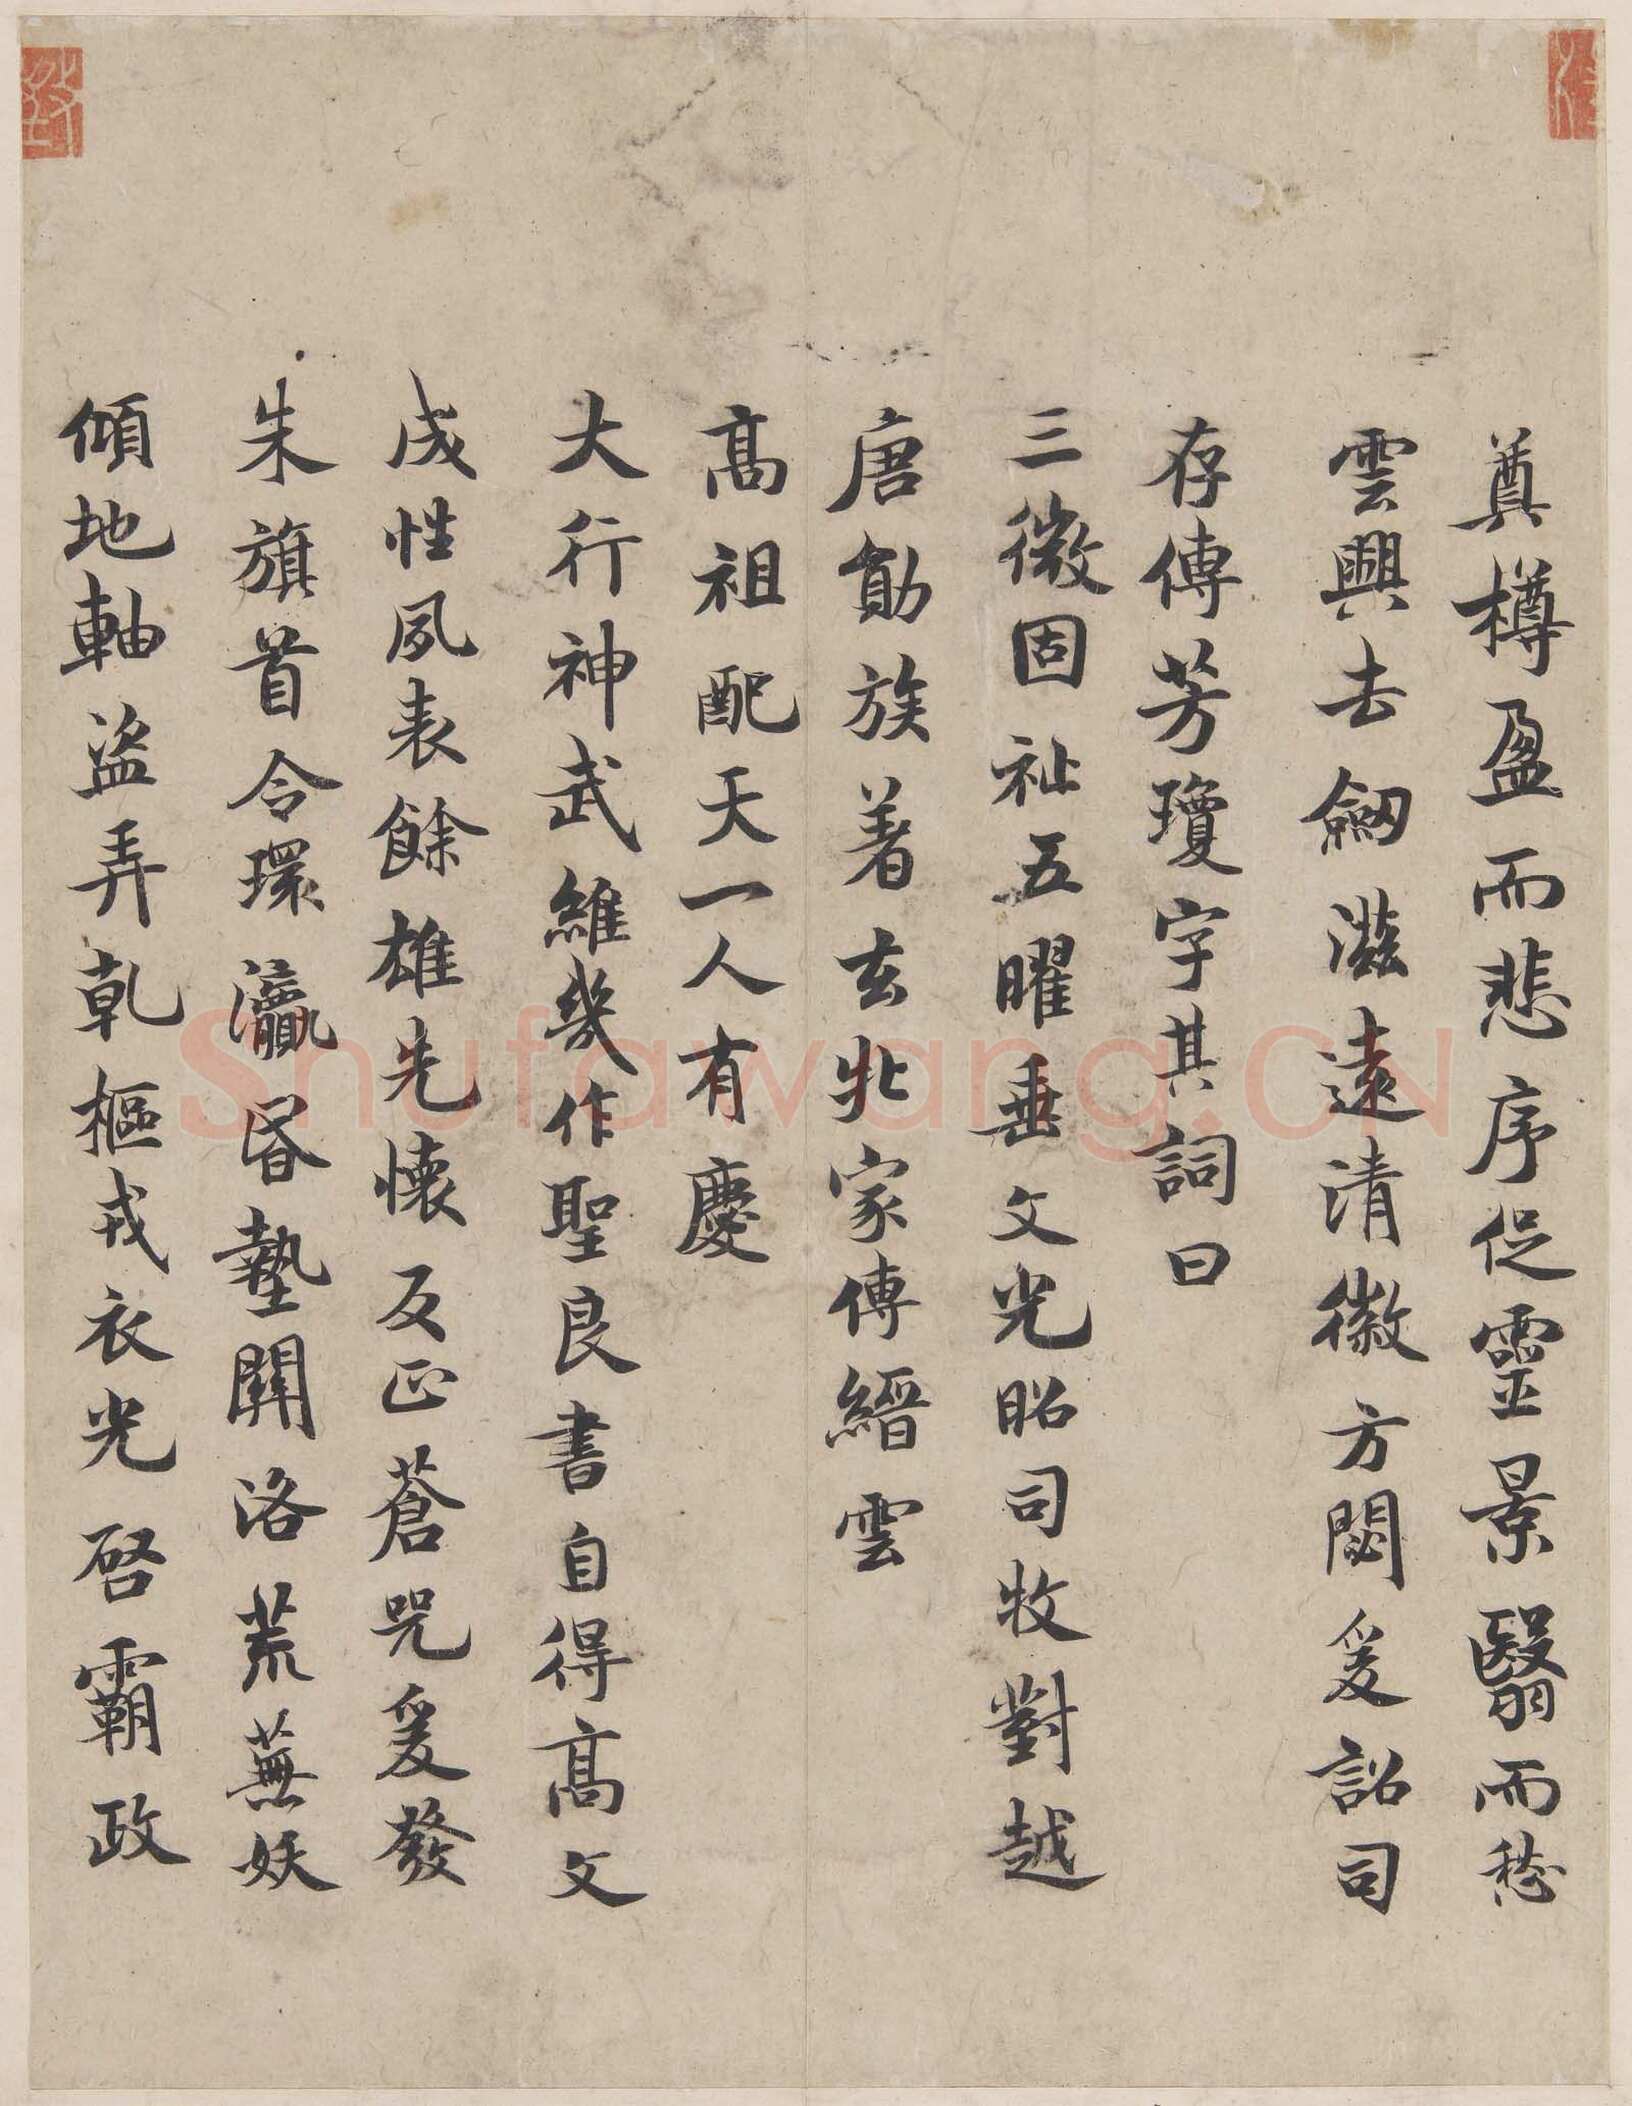 奠樽盈而悲序促靈景翳而愁
雲興去劒滋遠清徽方閟爰詔司
存傳芳瓊字其詞曰
三微固祉五曜垂文光昭司牧對越
唐勛族著玄丘家傳縉雲
高祖配天一人有慶
大行神武維幾作聖良書自得高文
成性夙表餘雄先懷反正蒼兕爰發
朱旗首令環瀛昏墊關洛荒蕪妖
傾地軸盜弄乾樞戎衣光啓霸政
Shufawang.CN